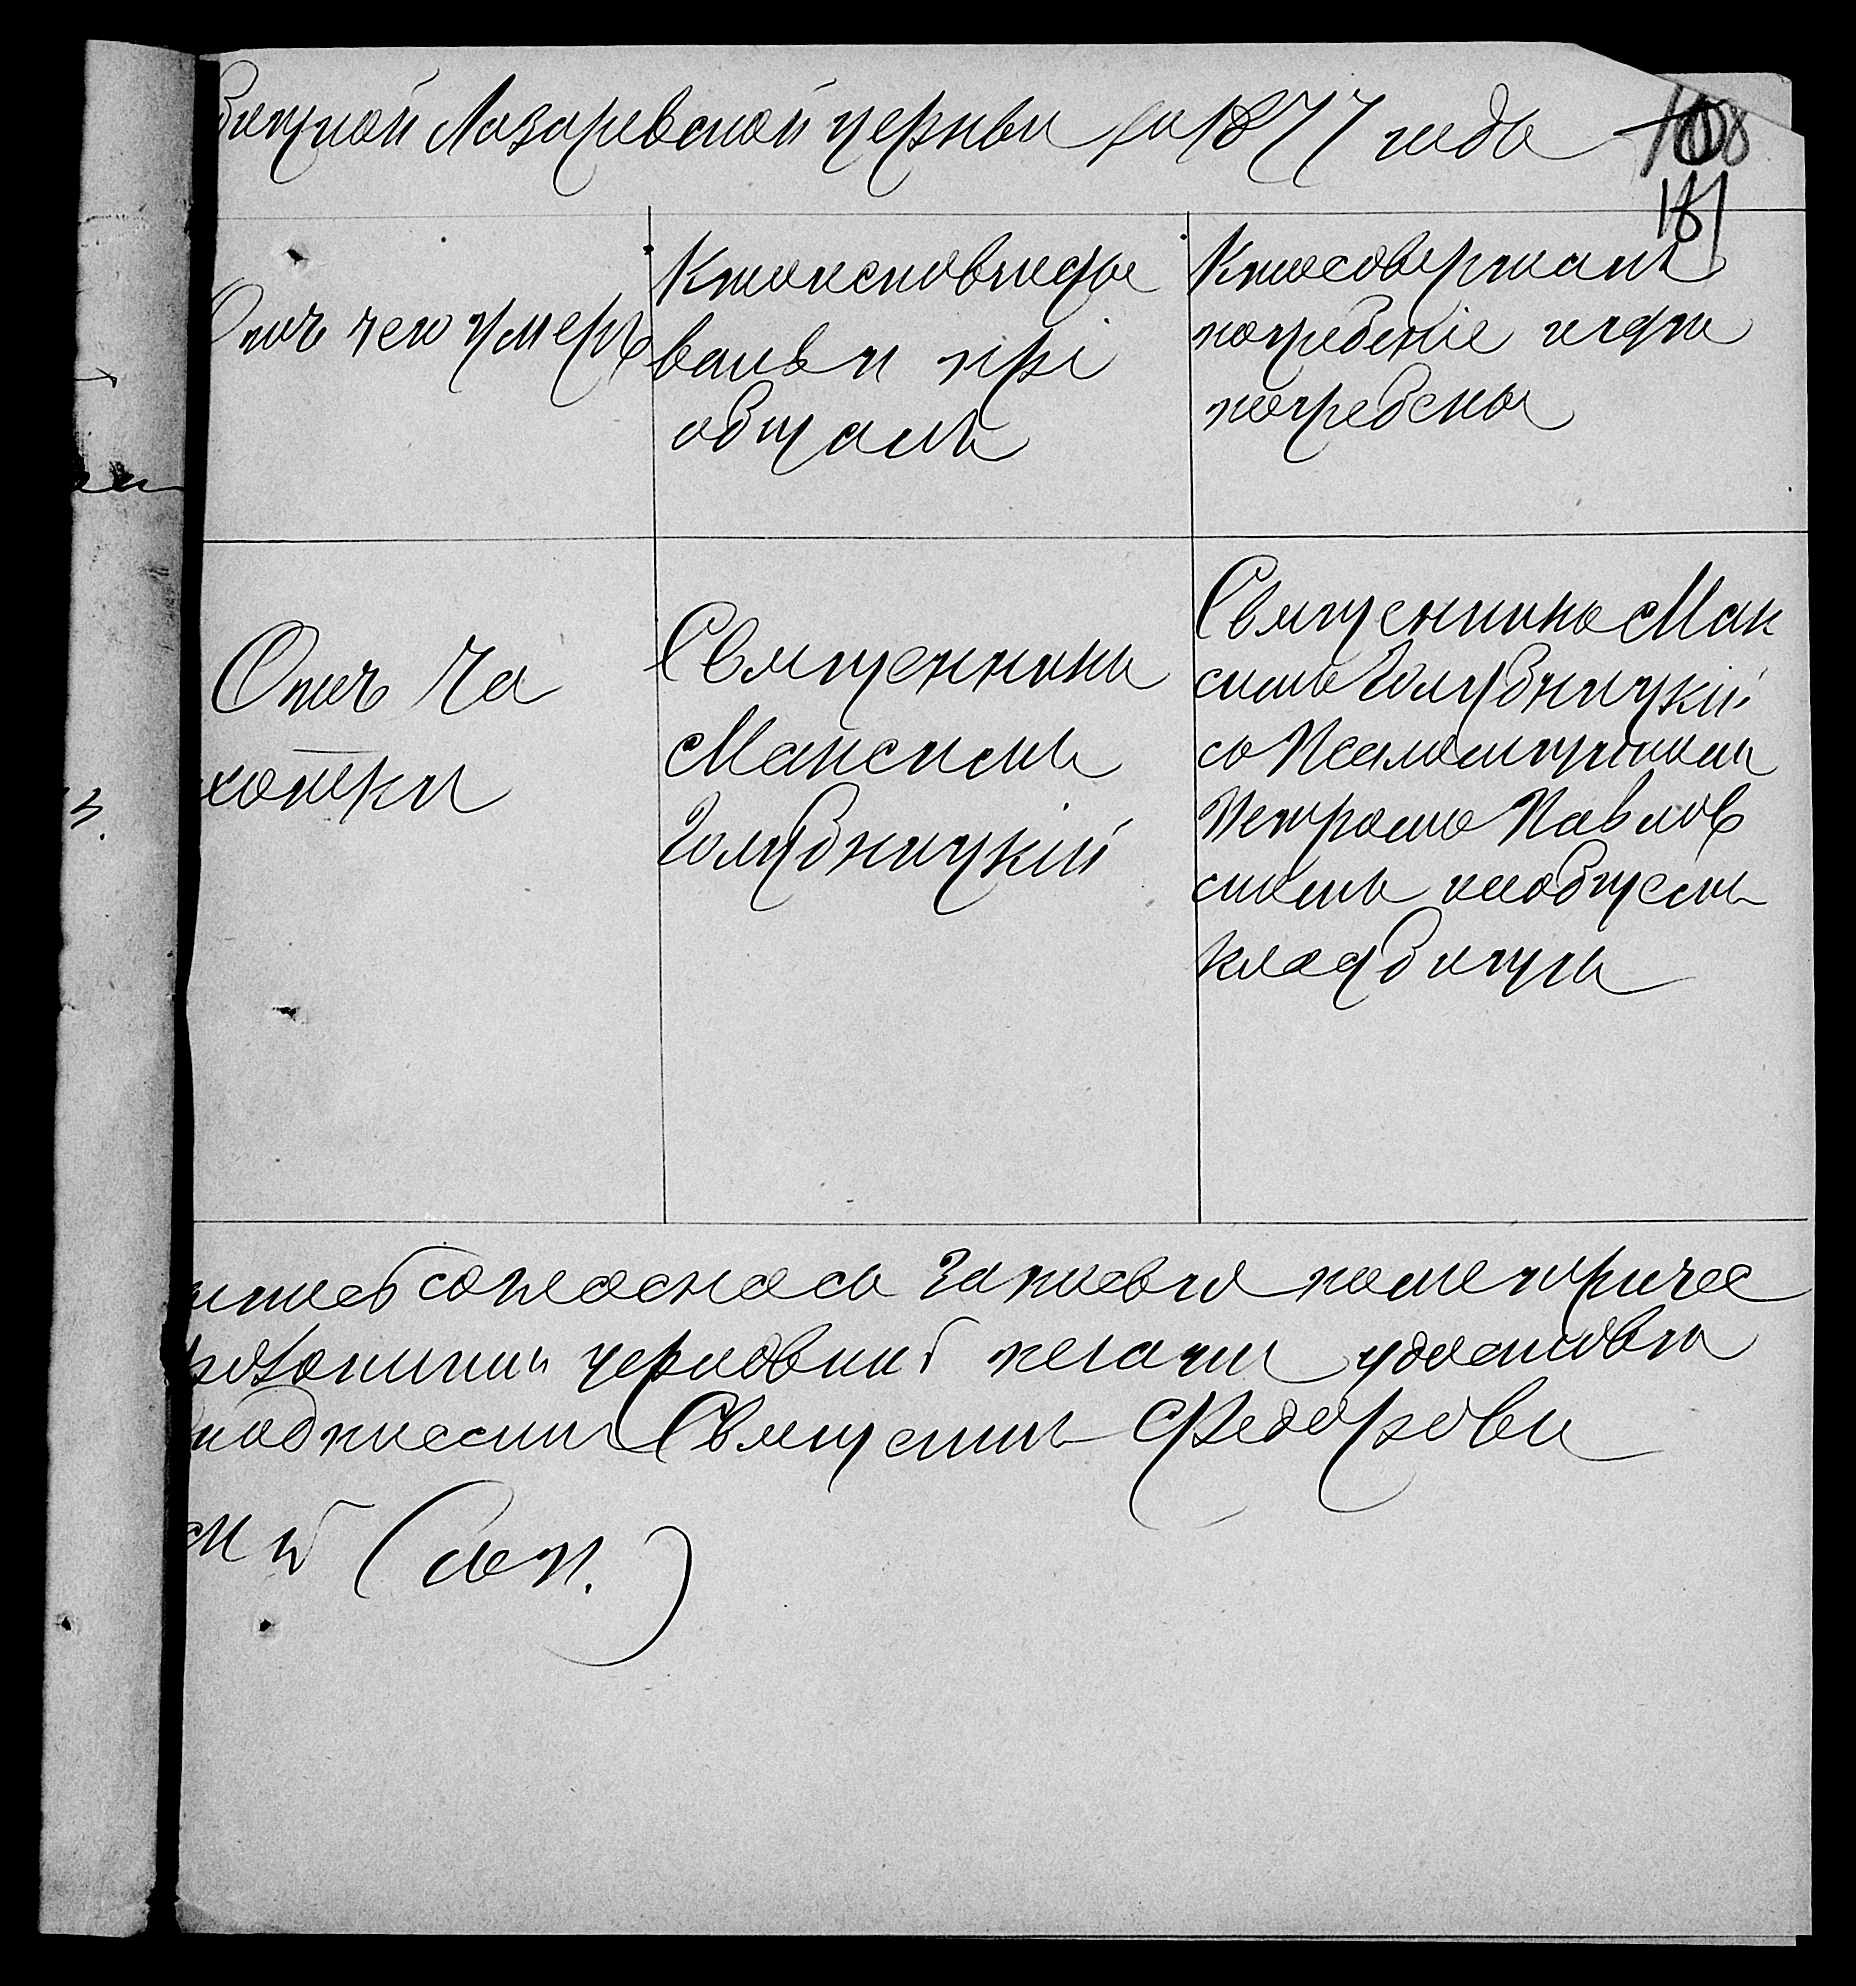 бищной Лазаревской церкви за 1877 годъ
108
181
Отъ чего умеръ
Кто исповѣды
валъ и прі
общалъ
Кто совершалъ
погребеніе и гдѣ
погребены
Отъ ча
хотки
Священникъ
Максимъ
Голубницкій
Священникъ Мак
симъ Голубницкій
съ Псаломщикомъ
Петромъ Павлов
скимъ на общемъ
кладбищѣ
согласна съ записью по метричес
церковной печати удостовѣ
подписами Священникъ Федоровъ
(м. п.)